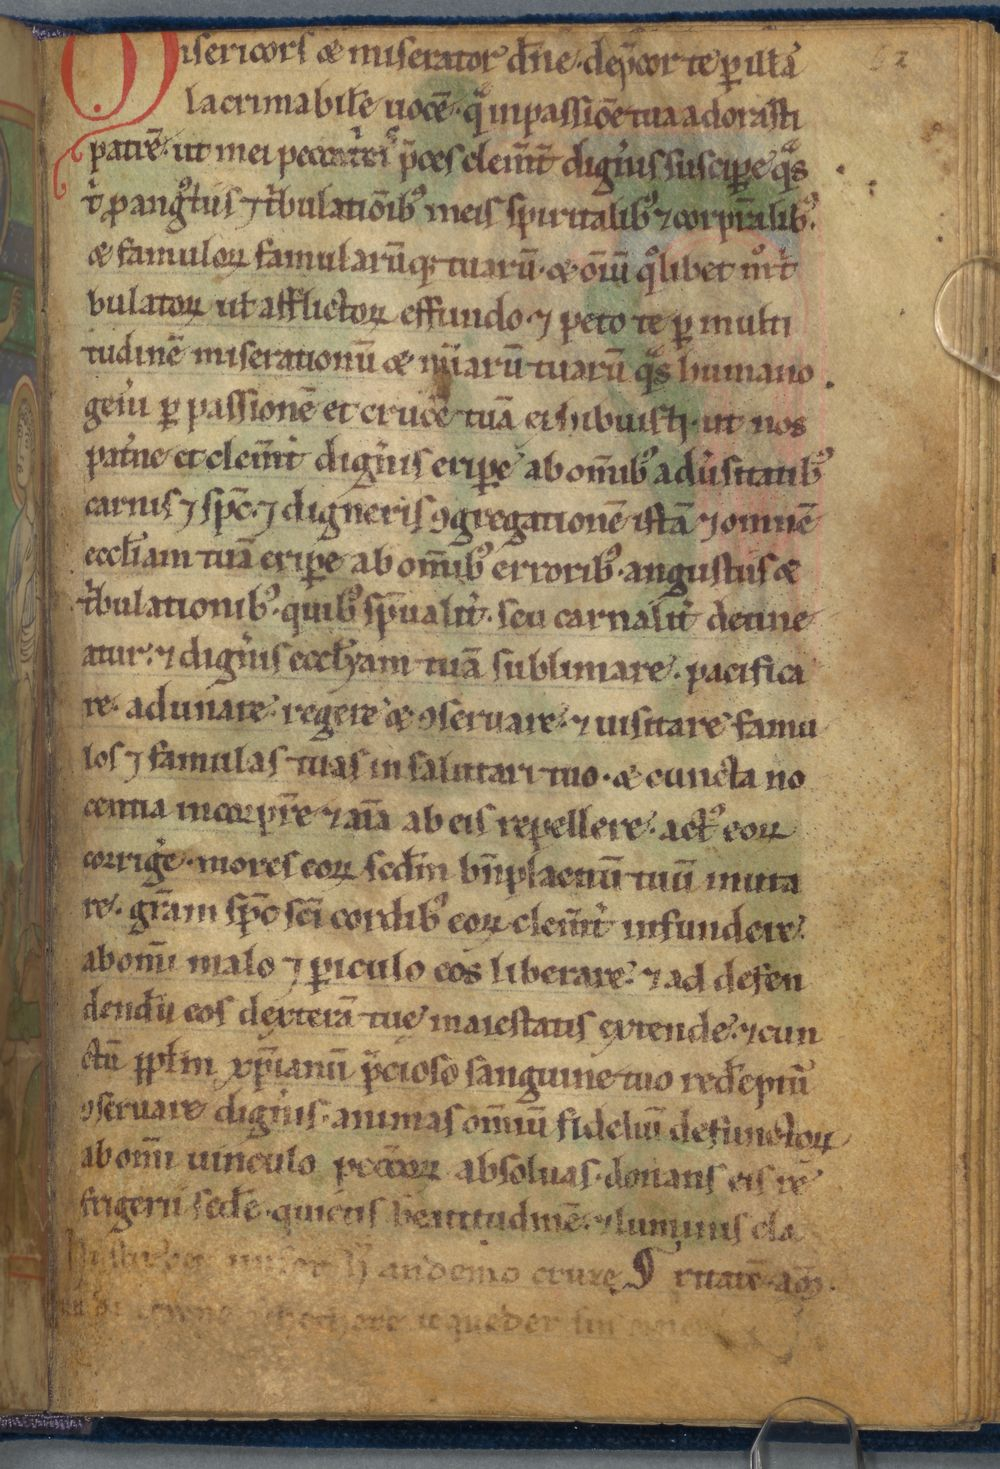 Misericors & miserator dn̄e· dep̄cor te p̲ illā
lacrimabilē uocē· qᵃ̄ in passiōe tua adorasti
patrē· ut mei peccatͥcͥ p̄ces clem̄t dign̓is suscip̲e qͣs
t̓ p̲ angͦstiis ⁊ t̓bulatiōibꝰ meis spiritalibꝰ ⁊ corpr̄alibꝰ·
& famuloꝝ famularūq; tuarū· & om̄iū qͦlibet mͦ t̓
bulatoꝝ ut̓ afflictoꝝ effundo· ⁊ peto te p̲ multi
tudinē miserationū & mīarū tuarū qͣs humano
gen̓i p̲ passionē et crucē tuā exhibuisti· ut nos
pat̓ne et clem̄t̓ dign̓is erip̲e ab om̄ibꝰ adu̓sitatibꝰ
carnis ⁊ sp̄c· ⁊ digneris ꝯgregationē istā ⁊ omnē
eccl̄iam tuā erip̲e ab om̄ibꝰ erroribꝰ· angustiis &
t̓bulationibꝰ· quibꝰ sp̄ualit̓· seu carnalit̓ detine
atur· ⁊ dign̓is eccl̄iam tuā sublimare· pacifica
re· adunare· regere & ꝯseruare· ⁊ uisitare famu
los ⁊ famulas tuas in salutari tuo· & cuncta no
centia in corpr̄e ⁊ aīa ab eis repellere· actꝰ eoꝝ
corrig̓e· mores eoꝝ sed̄m bn̄placitū tuū muta
re· gr̄am sp̄c sc̄i cordibꝰ eoꝝ clem̄t̓ infundere·
ab om̄i malo ⁊ p̲iculo eos liberare· ⁊ ad defen
dendū eos dexterā tue maiestatis extende· ⁊ cun
ctū pp̄lm xp̄ianū p̄cioso sanguine tuo redēptū
ꝯseruare dign̓is· animas om̄iū fideliū defunctoꝝ
ab om̄i uinculo pecc̄oꝝ absoluas· donans eis re
frigerii sedē· quietis beatitudinē· ⁊ luminis cla
ritatē· am̄·